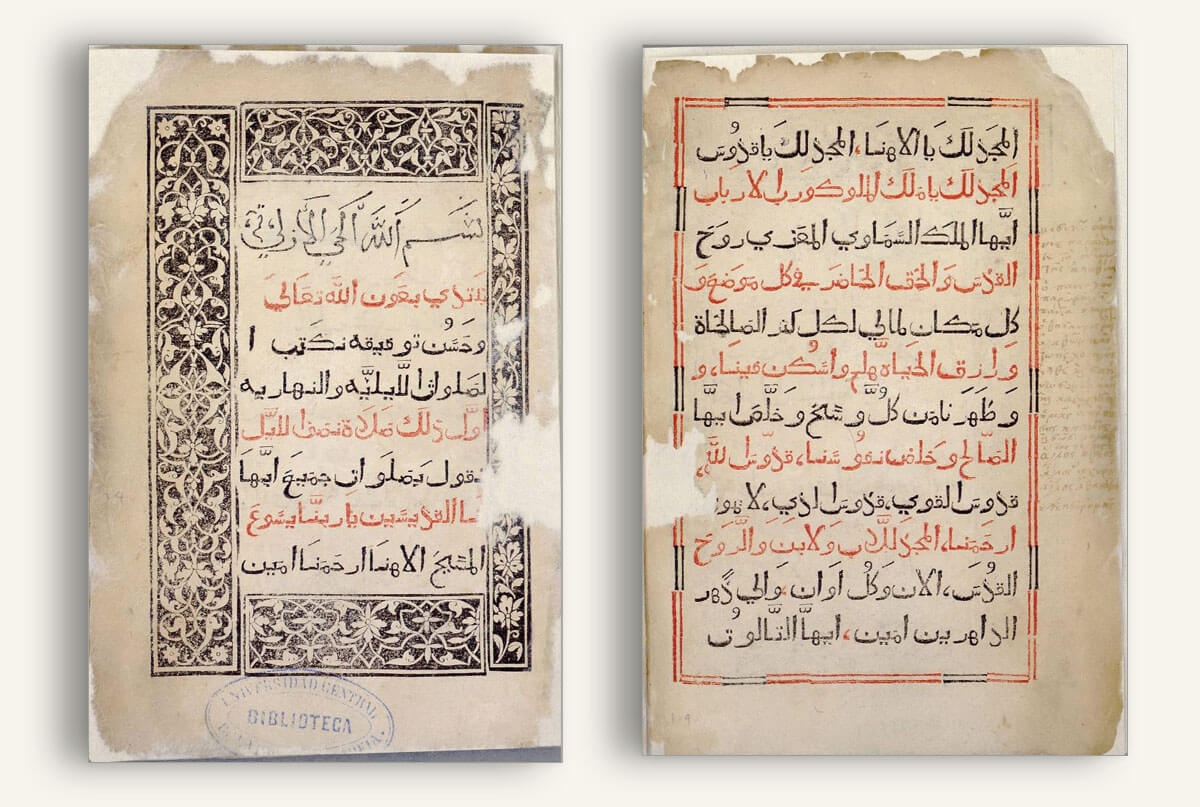 بسم الله الحي الازلي
نبتدي بعون الله تعالي
وحسن توقيقه نكتب ا
لصلواة الليليه والنهاريه
اول ذلك صلاة نصف الليل
نقول بصلوات جميع ايها
القديسين ياربنا يسوع
المسيح الاهنا ارحمنا امين
UNIVERSIDAD CENTRAL
BIBLIOTECA
المجد لك يا الاهنا، المجد لك يا قدوس
المجد لك يا ملك الملوك ورب الارباب
ايها الملك السماوي المعزي روح
القدس والحق الحاضر في كل موضع و
كل مكان لمالي لكل كنز الصالحاة
ورازق الحياه هلم واسكن فينا، و
وطهرنا من كل وسخ وخلص ايها
الصالح وخلص نفوسنا، قدوس الله،
قدوس القوي، قدوس الذي، لا يموت
ارحمنا، المجد للاب ولابن والروح
القدس، الان وكل اوان، والي دهر
الداهرين امين، ايها التالوت